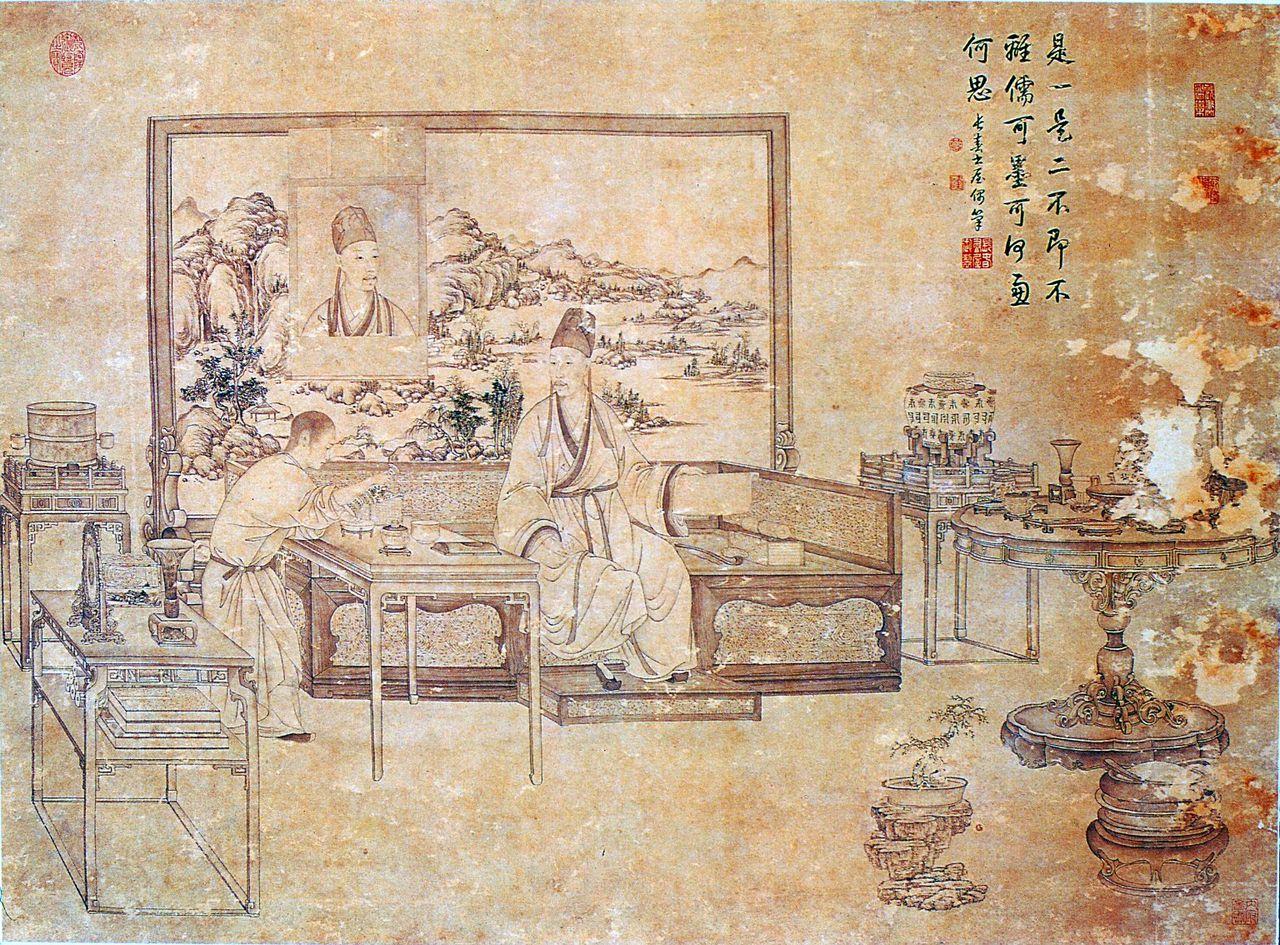 是一是二不即不
離儒可墨可何慮
何思 長春書屋偶筆